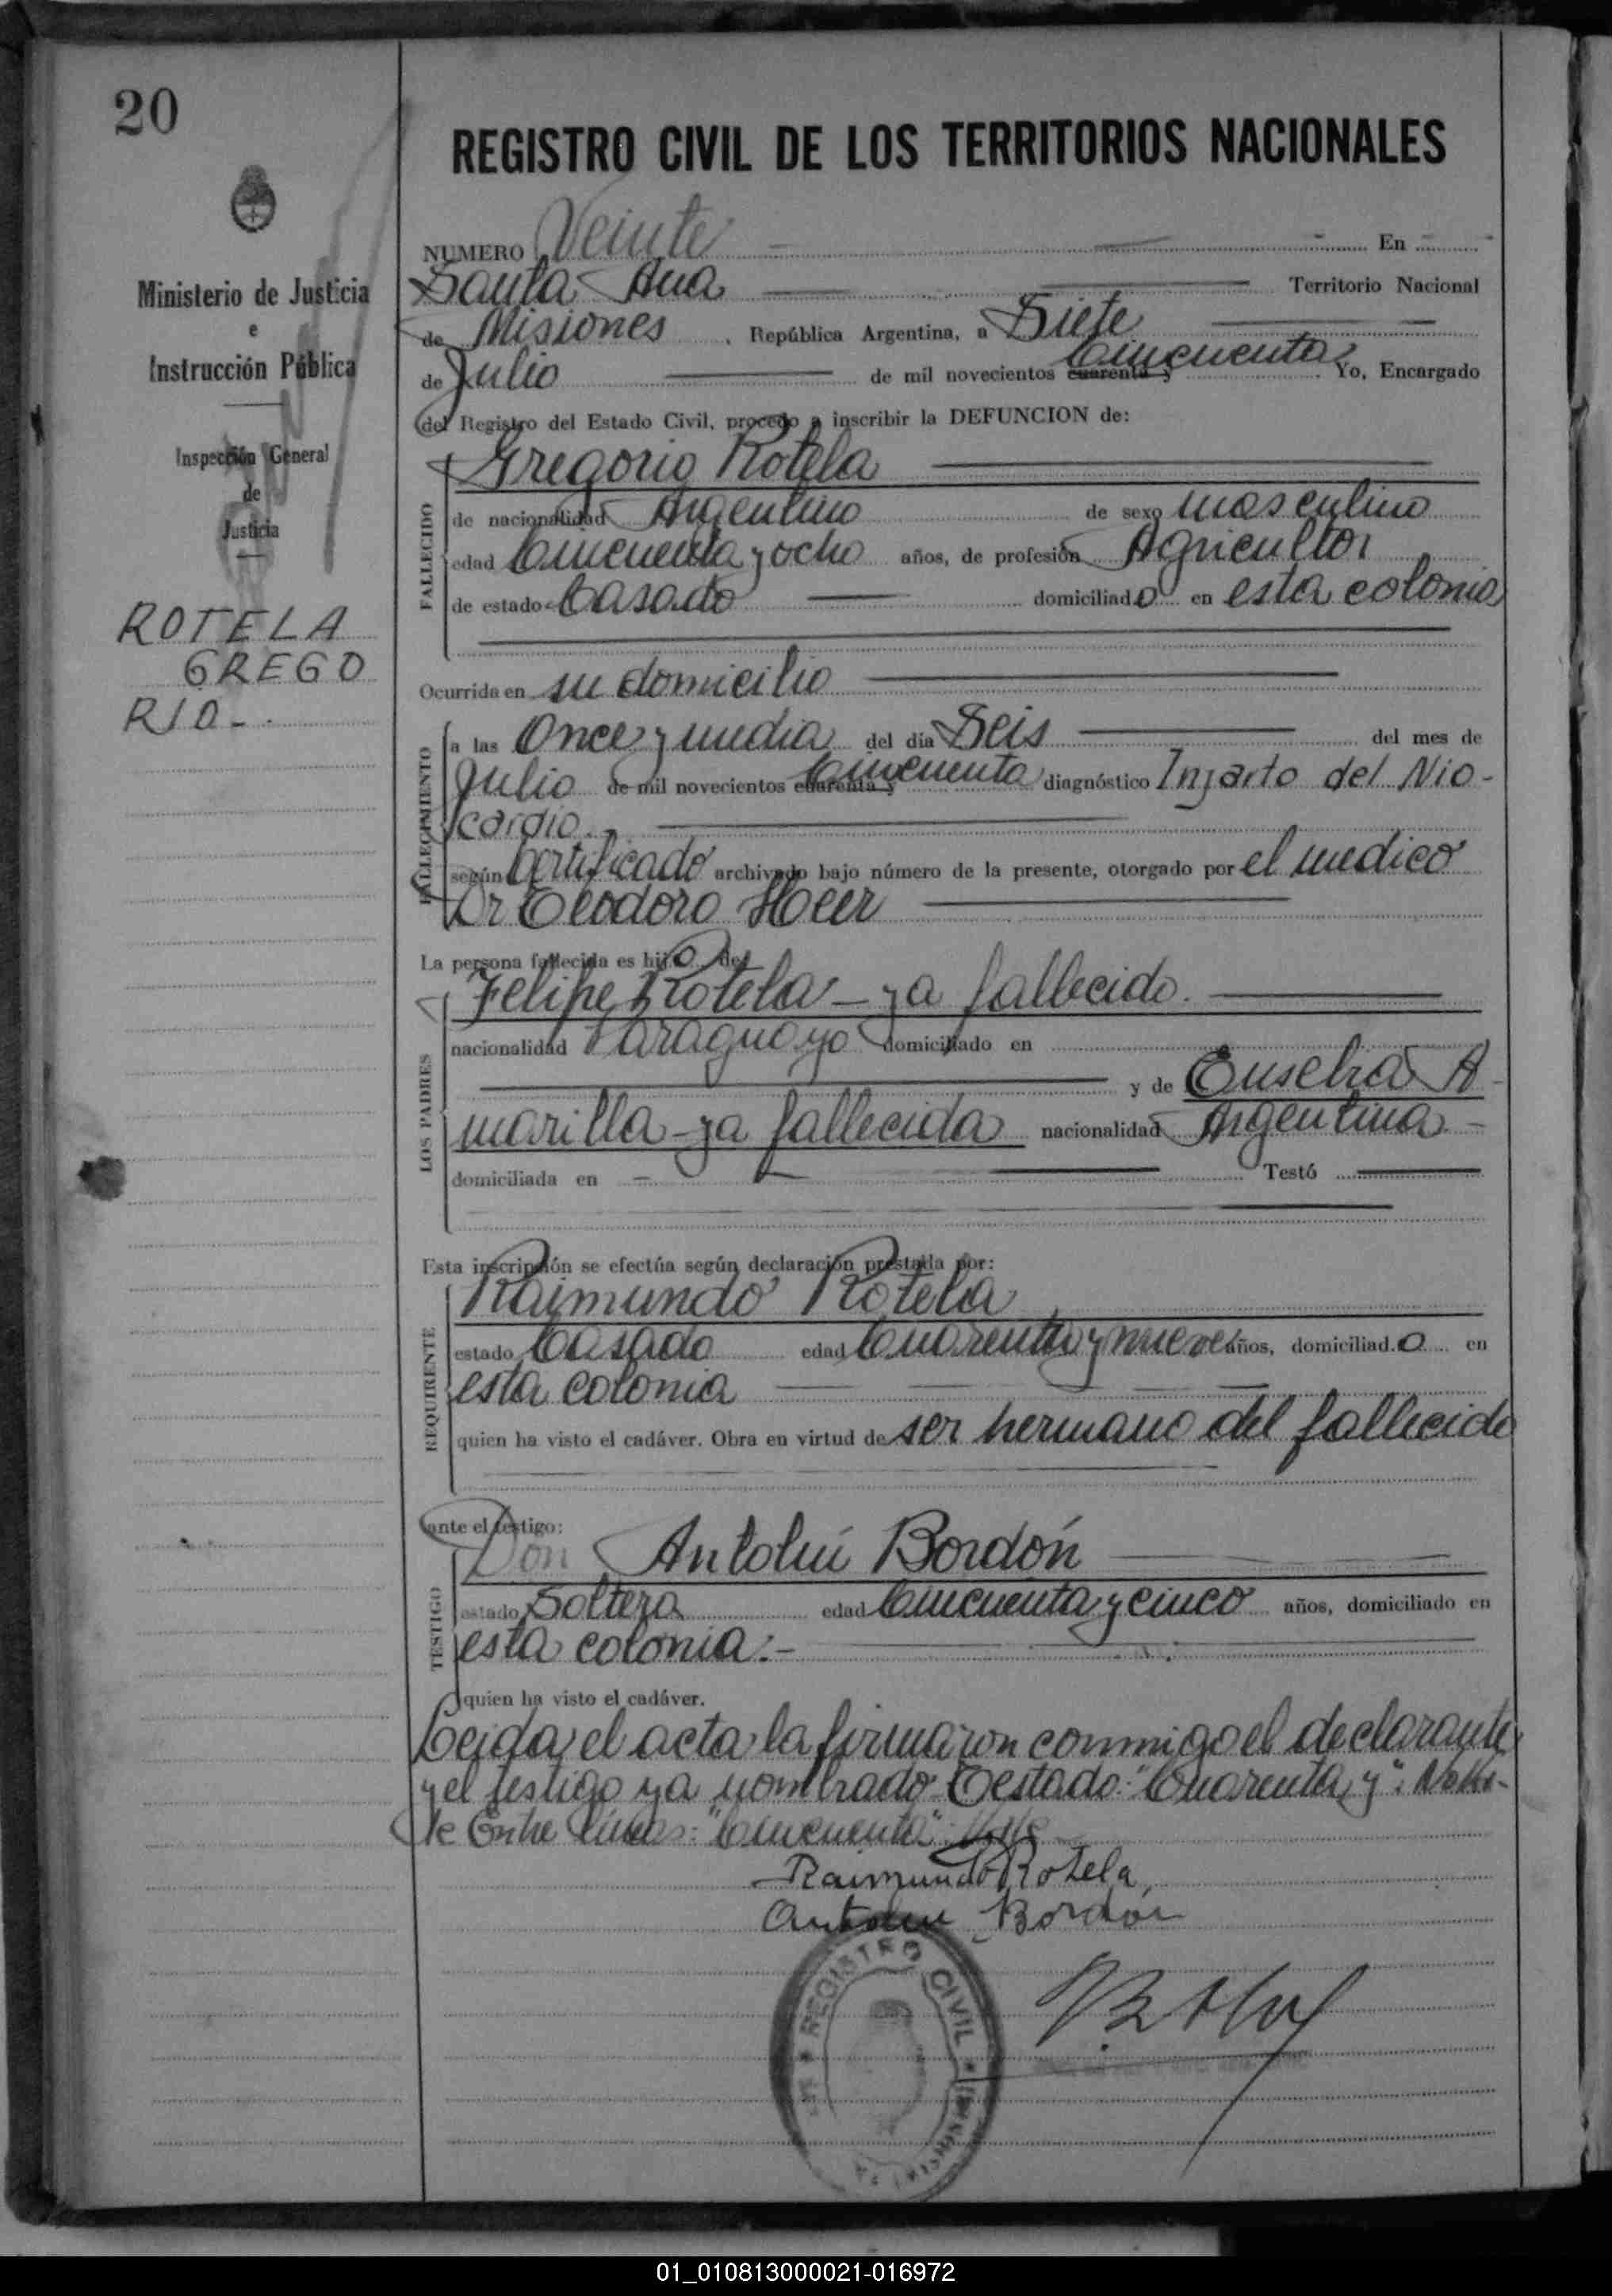 20
REGISTRO CIVIL DE LOS TERRITORIOS NACIONALES
Ministerio de Justicia
e
Instrucción Pública
Inspección General
de
Justicia
ROTELA
GREGO
RIO-.
NUMERO Veinte — En
Santa Ana — Territorio Nacional
de Misiones, República Argentina, a Siete
de Julio — de mil novecientos cuarenta y Cincuenta Yo, Encargado
del Registro del Estado Civil, procedo a inscribir la DEFUNCION de:
Gregorio Rotela
FALLECIDO
de nacionalidad Argentino de sexo masculino
edad Cincuenta y ocho años, de profesión Agricultor
de estado Casado — domiciliado en esta colonia
Ocurrida en su domicilio
FALLECIMIENTO
a las Once y media del día Seis — del mes de
Julio de mil novecientos cuarenta y Cincuenta diagnóstico Infarto del Mio-
cardio.
según Certificado archivado bajo número de la presente, otorgado por el medico
Dr Teodoro
La persona fallecida es hijo de
Felipe Rotela - ya fallecido.
LOS PADRES
nacionalidad Paraguayo domiciliado en
— y de Eusebia A-
marilla - ya fallecida nacionalidad Argentina -
domiciliada en - — Testó —
Esta inscripción se efectúa según declaración prestada por:
Raimundo Rotela
REQUIRENTE
estado Casado edad Cuarenta y nueve años, domiciliado en
esta colonia
quien ha visto el cadáver. Obra en virtud de ser hermano del fallecido
ante el testigo:
Don Antolin Bordón
TESTIGO
estado Soltero edad Cincuenta y cinco años, domiciliado en
esta colonia.-
quien ha visto el cadáver.
Leida el acta la firmaron conmigo el declarante
y el testigo ya nombrado Testado: "Cuarenta y": No Va-
le Entre líneas: "Cincuenta": Vale
Raimundo Rotela
Antolin Bordon
REGISTRO CIVIL
01_010813000021-016972